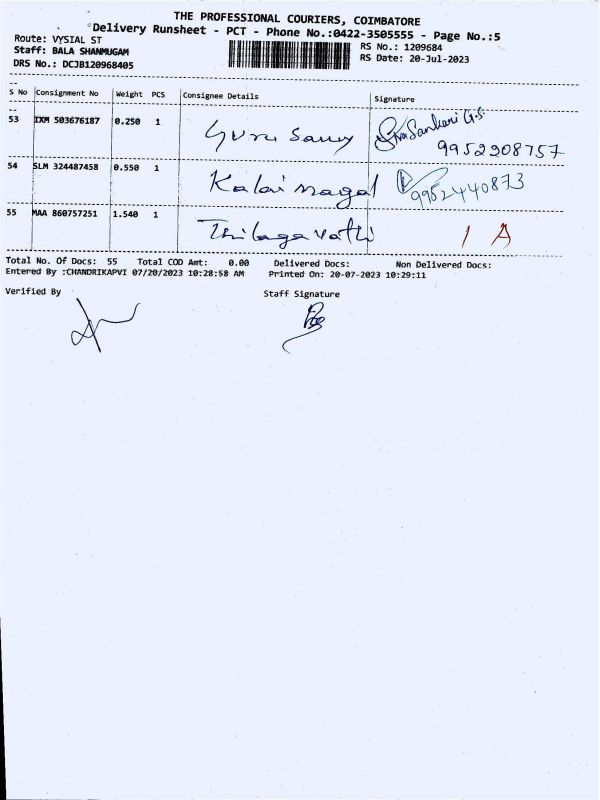 THE PROFESSIONAL COURIERS, COIMBATORE
Delivery Runsheet - PCT - Phone No.:0422-3505555 - Page No.:5
Route: VYSIAL ST
RS No.: 1209684
Staff: BALA SHANMUGAM
RS Date: 20-Jul-2023
DRS No.: DCJB120968405
S No Consignment No Weight PCS Consignee Details Signature
53 IXM 503676187 0.250 1 Guru Samy Siva Sankari G.S.
9952908757
54 SLM 324487458 0.550 1 Kalai magal 9952440873
55 MAA 860757251 1.540 1 Thilagavathi 1 A
Total No. Of Docs: 55 Total COD Amt: 0.00 Delivered Docs: Non Delivered Docs:
Entered By :CHANDRIKAPVI 07/20/2023 10:28:58 AM Printed On: 20-07-2023 10:29:11
Verified By Staff Signature